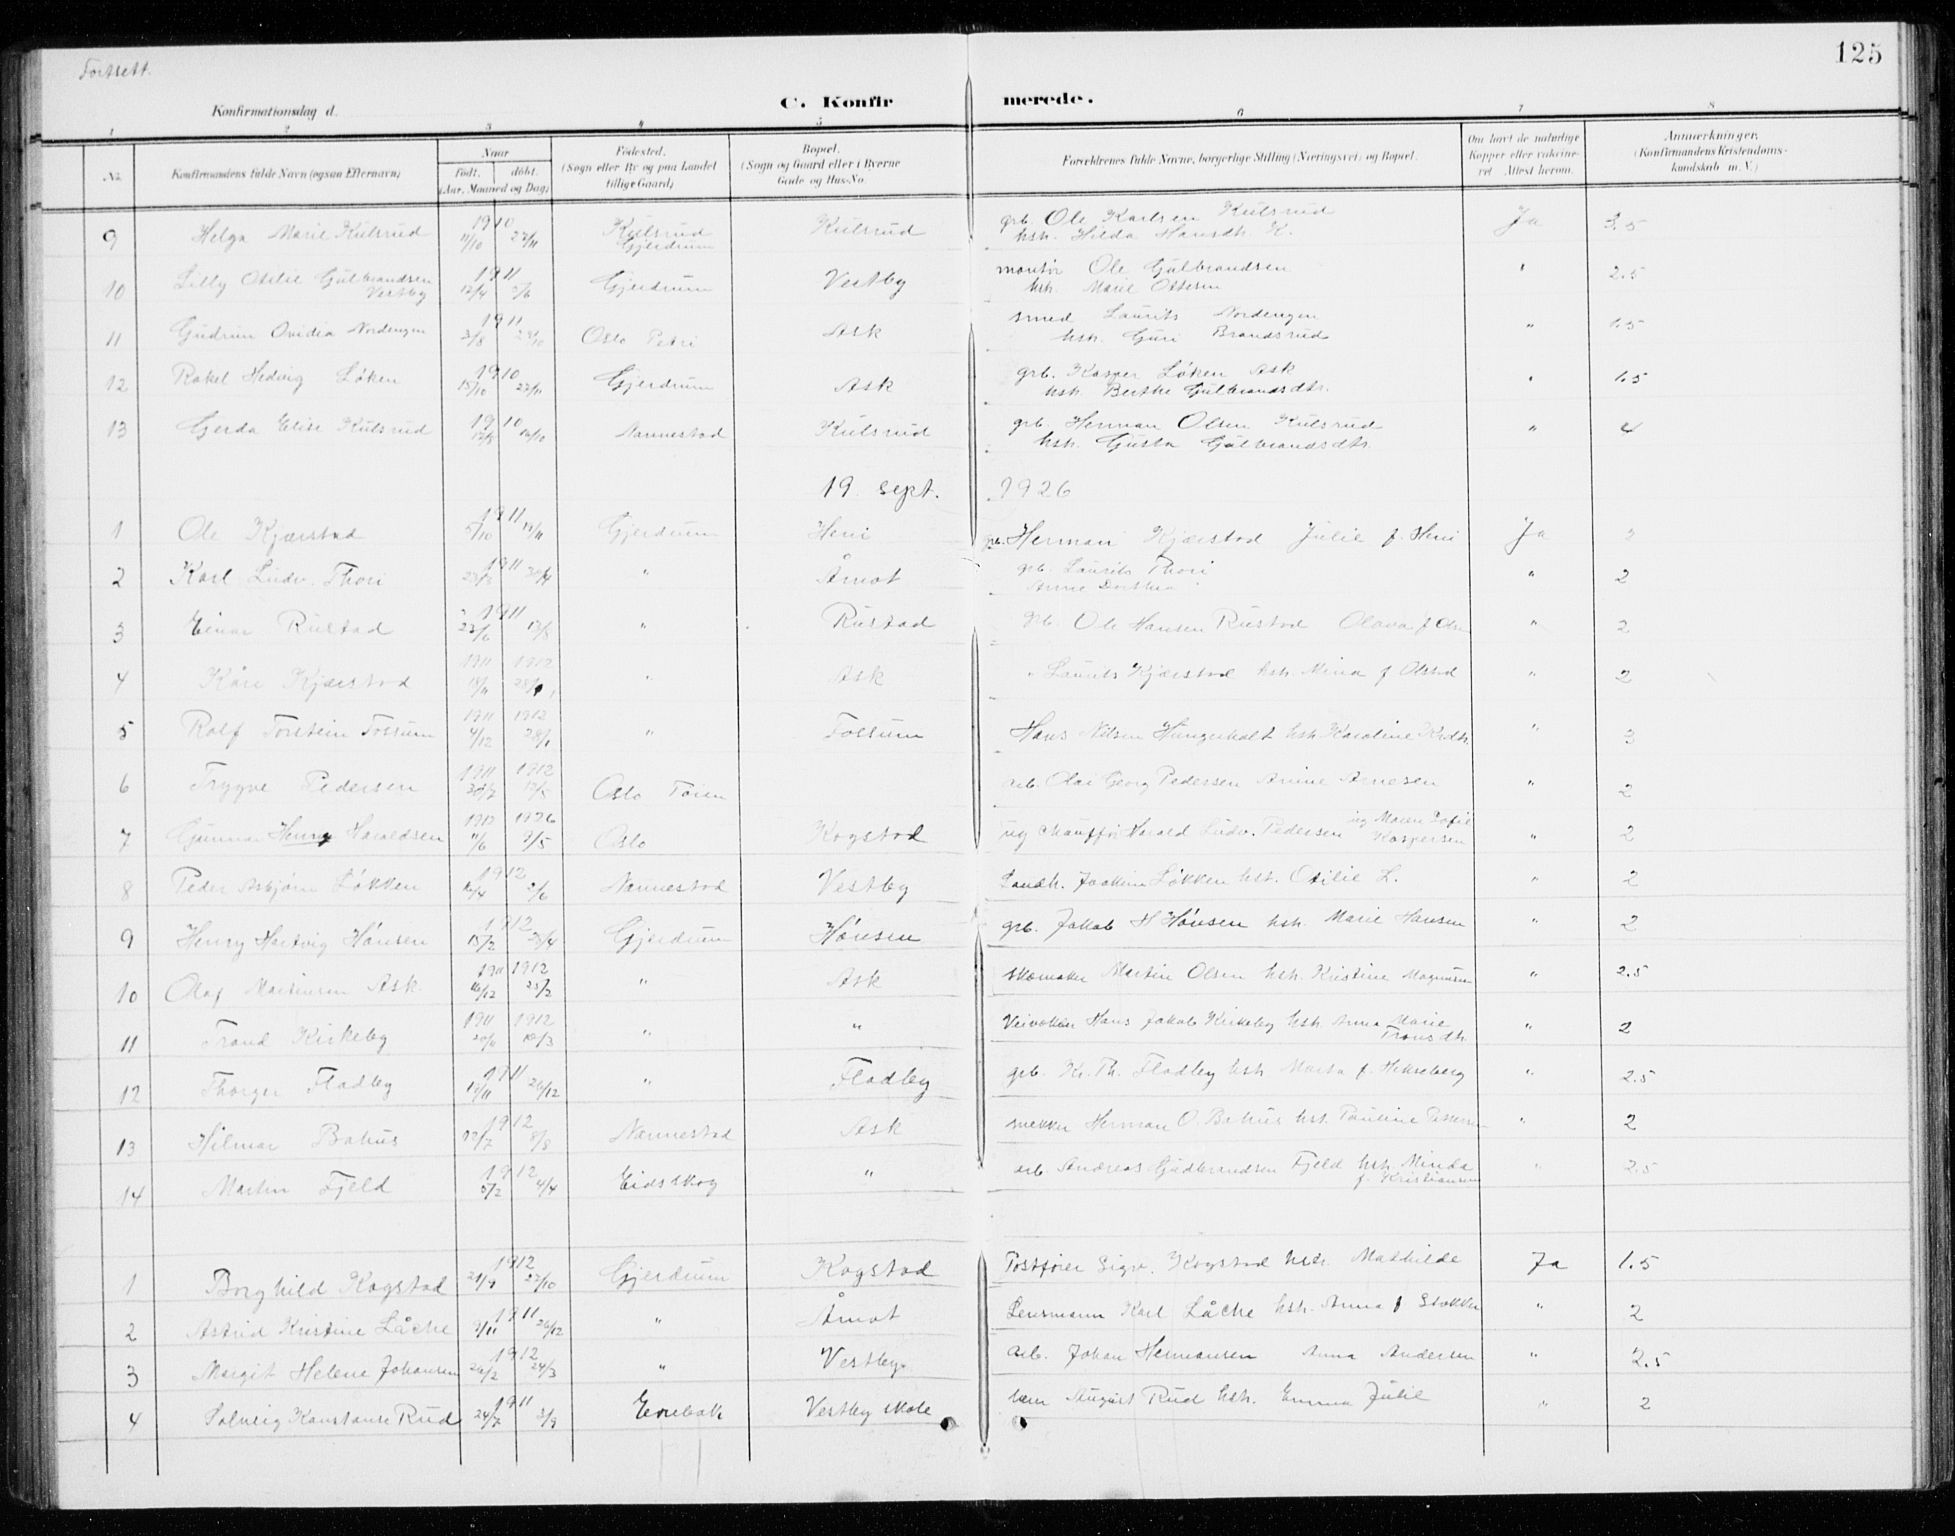 Fortsatt.
125
Konfirmationsdag d.
C. Konfirmerede.
1 2 3 4 5 6 7 8
No.
Konfirmandens fulde Navn (ogsaa Efternavn)
Naar
født. døbt.
(Aar, Maaned og Dag)
Fødested.
(Sogn eller By og paa Landet
tillige Gaard)
Bopæl.
(Sogn og Gaard eller i Byerne
Gade og Hus-No.
Forældrenes fulde Navne, borgerlige Stilling (Næringsvei) og Bopæl.
Om havt de naturlige
Kopper eller vaccine-
ret. Attest herom.
Anmærkninger.
(Konfirmandens Kristendoms-
kundskab m.V.)
9 Helga Marie Kulsrud 1910 11/10 27/11 Kulsrud Gjerdrum Kulsrud grb. Ole Karlsen Kulsrud Ja
hstr. Hilda Hansdtr. K.
10 Lilly Otilie Gulbrandsen Vestby 1911 12/4 5/6 Gjerdrum Vestby montør Ole Gulbrandsen " 2.5
hstr. Marie Ottesen
11 Gudrun Ovidia Nordengen 1911 3/8 29/10 Oslo Petri Ask smed Laurits Nordengen " 1.5
hstr. Guri Brandsrud
12 Rakel Hedvig Løken 1910 15/10 27/11 Gjerdrum Ask grb. Kasper Løken Ask " 1.5
hstr. Berthe Gulbrandsdtr.
13 Gerda Elise Kulsrud 1910 16/10 Nannestad Kulsrud grb. Herman Olsen Kulsrud " 4
hstr. Gusta Gulbrandsdtr.
19. sept. 1926
1 Ole Kjærstad 1911 5/10 19/11 Gjerdrum Heni grb. Herman Kjærstad Julie f. Heni Ja
2 Karl Ludv. Thori 1911 " Åmot grb. Laurits Thori " 2
Anne Dorthea
3 Einar Rustad 1911 23/6 13/8 " Rustad grb. Ole Hansen Rustad Olava f Olsen " 2
4 Kåre Kjærstad 1911 18/11 1912 28/1 " Ask " Laurits Kjærstad hstr. Mina f Olstad " 2
5 Rolf Torstein Fossum 1911 4/12 1912 28/1 " Fossum Hans Nilsen Hungerholt hstr. Karoline Krdtr. " 3
6 Trygve Pedersen 1911 30/7 1912 Oslo Tøien arb. Olai Georg Pedersen Anine Arnesen " 2
7 Gunnar Henry Haraldsen 1912 11/6 1926 9/5 Oslo Kogstad ug chauffør Harald Ludv. Pedersen ug Maren Sofie Kaspersen " 2
8 Peder Asbjørn Løkken 1912 16/4 2/6 Nannestad Vestby Landh. Joakim Løkken hst. Otilie L. " 2
9 Henry Hartvig Hønsen 1912 15/2 Gjerdrum Hønsen grb. Jakob H Hønsen hstr. Marie Hansen " 2
10 Olaf Martinsen Ask 1911 16/12 1912 25/2 " Ask skomaker Martin Olsen hstr. Kristine Magnusen " 2.5
11 Trond Kirkeby 1911 1912 10/3 " " Veivokter Hans Jakob Kirkeby hstr Anna Marie Tronsdtr. " 2
12 Thorger Fladby 1911 17/11 26/12 " Fladby grb. Kr. Th. Fladby hstr Marta f. Hekseberg " 2.5
13 Hilmar Bahus 1912 12/7 8/8 Nannestad Ask snekker Herman O. Bahus hst. Pauline Pettersen " 2
14 Martin Fjeld 1912 5/2 4/4 Eidskog " arb Andreas Gudbrandsen Fjeld hstr. Minda f. Kristiansen " 2.5
1 Borghild Kogstad 1912 21/9 27/10 Gjerdrum Kogstad Postfører Sigv. Kogstad hstr. Mathilde Ja 1.5
2 Astrid Kristine Låche 1911 9/11 26/12 " Åmot Lensmann Karl Låche hstr. Anna f Stokker " 2
3 Margit Helene Johansen 1912 26/2 24/3 " Vestby arb. Johan Hermansen Anna Andersen " 2.5
4 Solveig Konstanse Rud 1911 24/7 3/9 Enebak Vestby skole lærer August Rud hstr. Emma Julie " 2